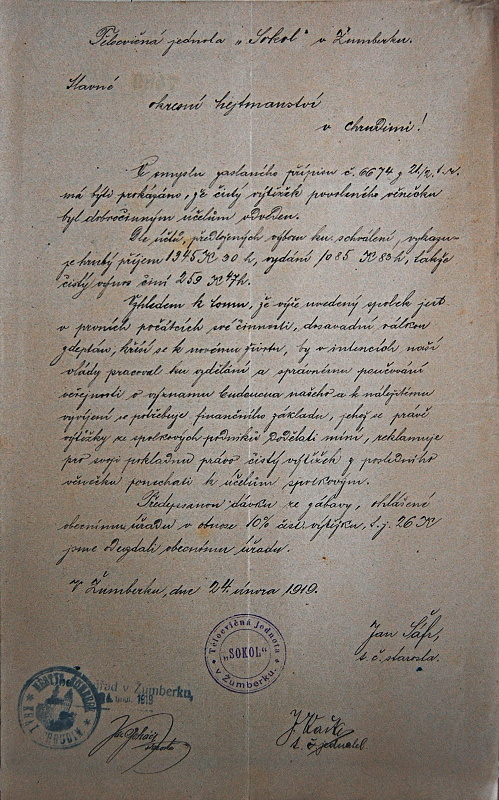 Tělocvičná jednota „Sokol" v Žumberku.
Slavné
okresní hejtmanství
v Chrudimi!
V smyslu zaslaného přípisu č. 6674 z 21/2. t. r.
má býti prokázáno, že čistý výtěžek povoleného věnečku
byl dobročinným účelům odveden.
Dle účtů, předložených výboru ku schválení, vykazu-
je hrubý příjem 1345 K 30 h, vydání 1085 K 83 h, takže
čistý výnos činí 259 K 47 h.
Vzhledem k tomu, že výše uvedený spolek jest
v prvních počátcích své činnosti, dosavadní válkou
zdeptán, křísí se k novému životu, by v intencích naší
vlády pracoval ku vzdělání a správnému poučování
veřejnosti o významu budoucna našeho a k náležitému
vyvíjení se potřebuje finančního základu, jehož se právě
výtěžky ze spolkových podniků dodělati míní, reklamuje
pro svoji pokladnu právo čistý výtěžek z posledního
věnečku ponechati k účelům spolkovým.
Předepsanou dávku ze zábavy, ohlášené
obecnímu úřadu v obnose 10% čist. výtěžku, t. j. 26 K
jsme odevzdali obecnímu úřadu.
V Žumberku, dne 24. února 1919.
Tělocvičná Jednota
„SOKOL"
v Žumberku.
Jan Šafr,
t. č. starosta.
úřad v Žumberku,
1919
t. č. jednatel